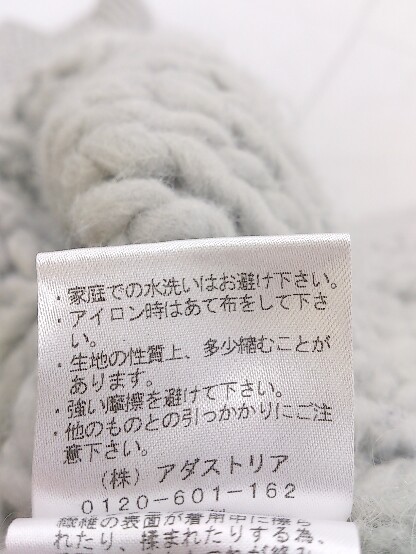 ・家庭での水洗いはお避け下さい。
・アイロン時はあて布をして下さ
い。
・生地の性質上、多少縮むことが
あります。
・強い摩擦を避けて下さい。
・他のものとの引っかかりにご注
意下さい。
(株)アダストリア
0120-601-162
繊維の表面が着用中に擦ら
れたり、揉まれたりする為、